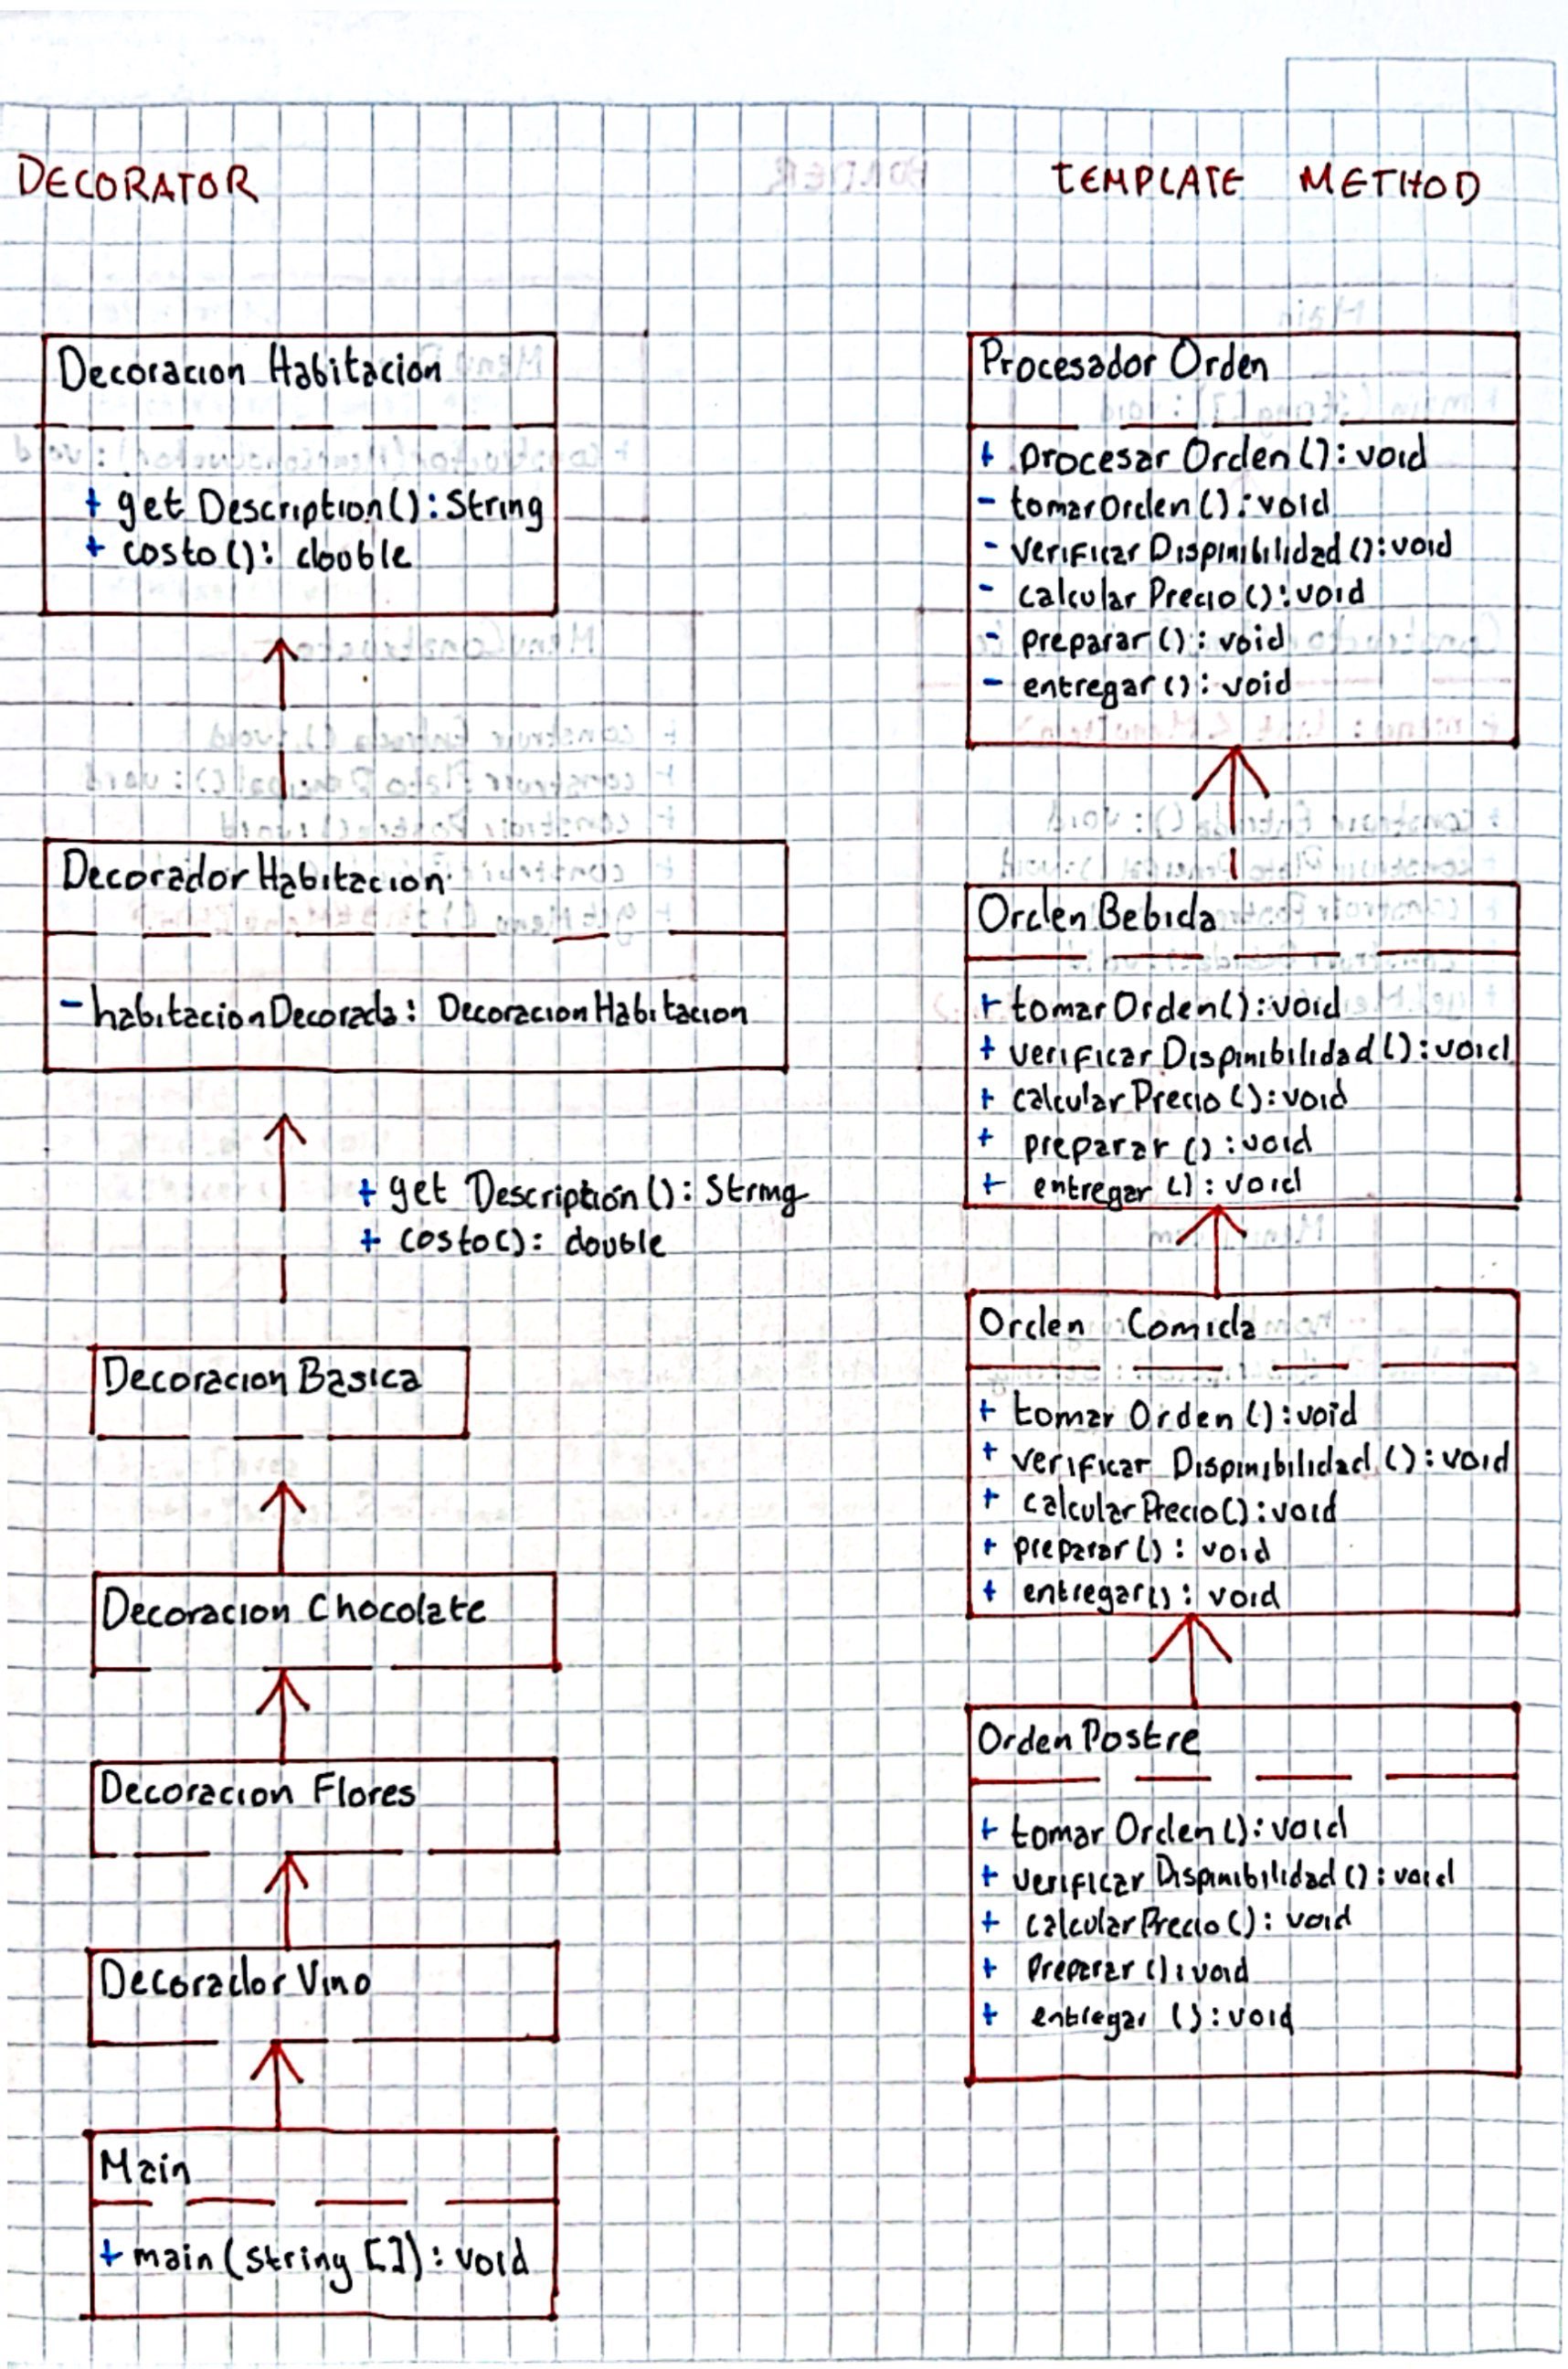 DECORATOR
Decoracion Habitacion
+ get Description(): String
+ costo(): double
Decorador Habitacion
- habitacionDecorada: DecoracionHabitacion
+ get Description(): String
+ costo(): double
Decoracion Basica
Decoracion Chocolate
Decoracion Flores
Decorador Vino
Main
+ main(string []): void
TEMPLATE METHOD
Procesador Orden
+ procesar Orden(): void
- tomarOrden(): void
- verificar Dispinibilidad(): void
- calcular Precio(): void
- preparar(): void
- entregar(): void
Orden Bebida
+ tomar Orden(): void
+ verificar Dispinibilidad(): void
+ calcular Precio(): void
+ preparar(): void
+ entregar(): void
Orden Comida
+ tomar Orden(): void
+ verificar Dispinibilidad(): void
+ calcular Precio(): void
+ preparar(): void
+ entregar(): void
Orden Postre
+ tomar Orden(): void
+ verificar Dispinibilidad(): void
+ calcular Precio(): void
+ Preparar(): void
+ entregar(): void